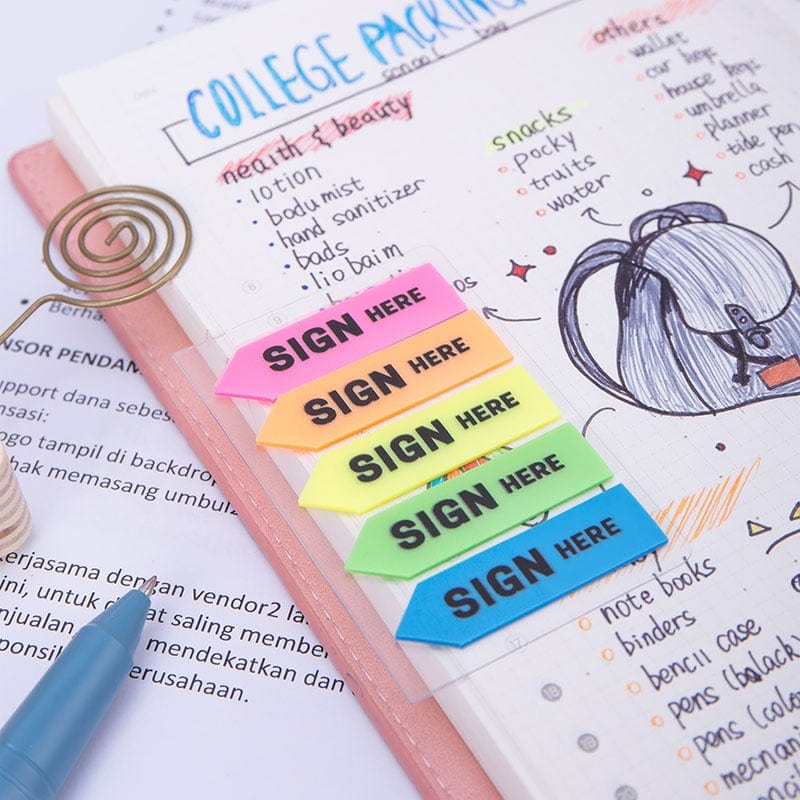 COLLEGE PACKING
school bag
health & beauty
lotion
body mist
hand sanitizer
pads
lip balm
snacks
pocky
fruits
water
others
wallet
car keys
house keys
umbrella
planner
tide pen
cash
SIGN HERE
SIGN HERE
SIGN HERE
SIGN HERE
SIGN HERE
note books
binders
pencil case
pens (black)
pens (colo
mechani
8
9
17
18
19
20
Berha
NSOR PENDAM
upport dana sebes
nsasi:
ogo tampil di backdrop
hak memasang umbul
erjasama dengan vendor2 la
ini, untuk dapat saling member
njualan mendekatkan dan
sponsi erusahaan.